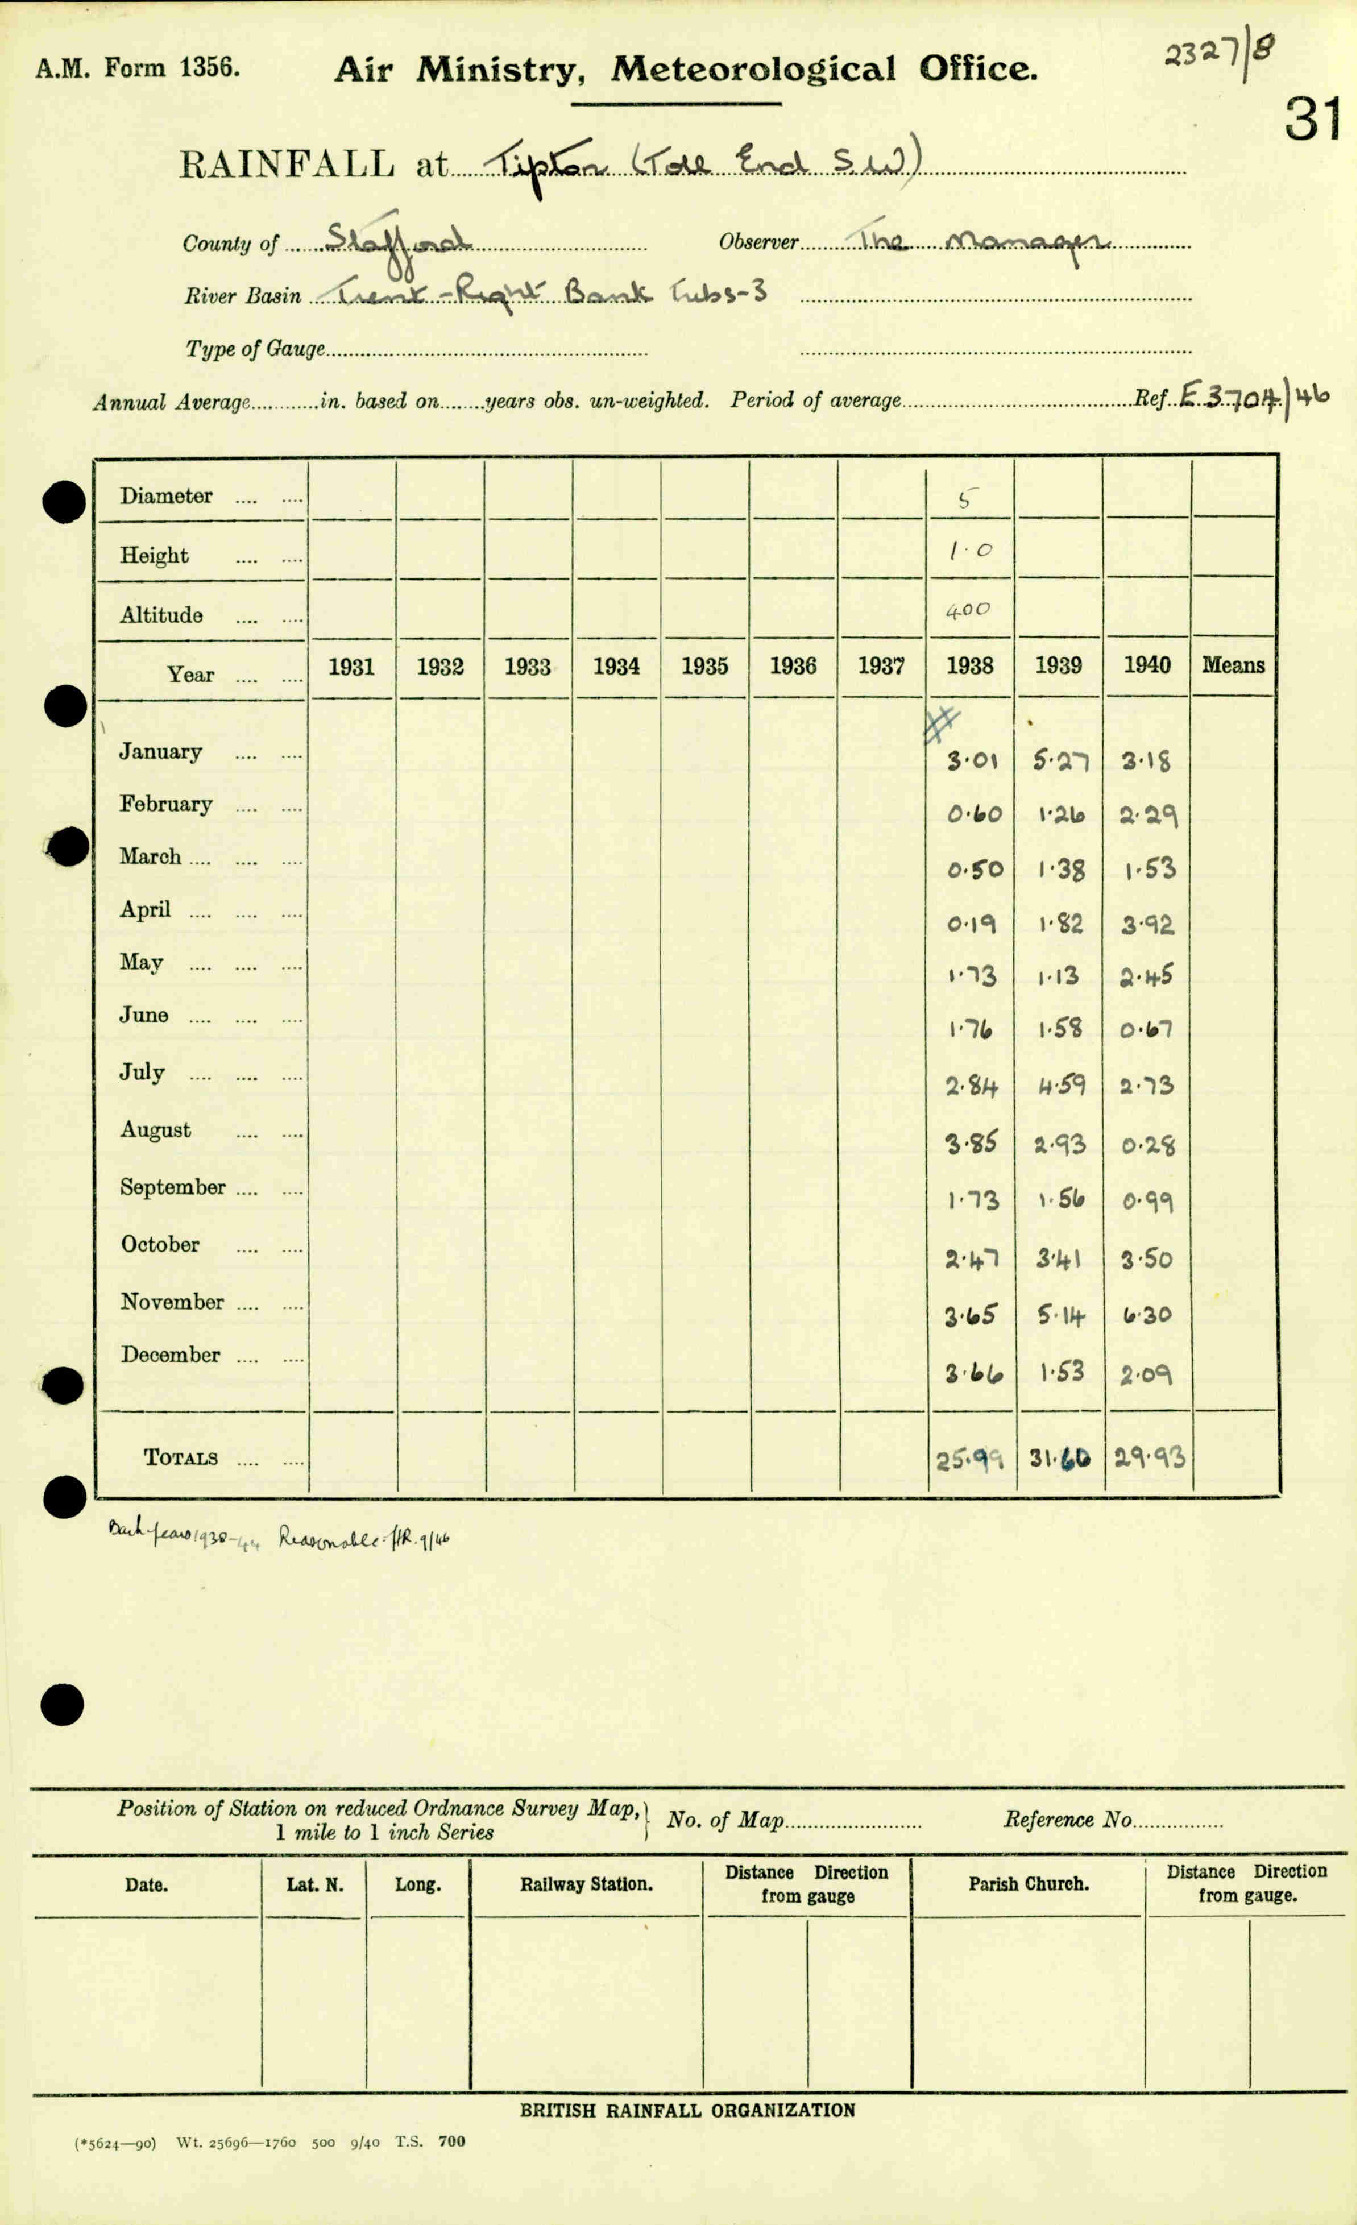 2327/8
A.M. Form 1356. Air Ministry, Meteorological Office.
31
RAINFALL at Tipton (Toll End S.W)
County of Stafford Observer The Manager
River Basin Trent-Right Bank Tribs-3
Type of Gauge
Annual Average in. based on years obs. un-weighted. Period of average Ref. E3704/46
Diameter 5
Height 1.0
Altitude 400
Year 1931 1932 1933 1934 1935 1936 1937 1938 1939 1940 Means
January 3.01 5.27 3.18
February 0.60 1.26 2.29
March 0.50 1.38 1.53
April 0.19 1.82 3.92
May 1.73 1.13 2.45
June 1.76 1.58 0.67
July 2.84 4.59 2.73
August 3.85 2.93 0.28
September 1.73 1.56 0.99
October 2.47 3.41 3.50
November 3.65 5.14 6.30
December 3.66 1.53 2.09
TOTALS 25.99 31.60 29.93
Back years 1938-44 Reasonable. 9/46
Position of Station on reduced Ordnance Survey Map, No. of Map Reference No.
1 mile to 1 inch Series
Date. Lat. N. Long. Railway Station. Distance Direction from gauge Parish Church. Distance Direction from gauge.
BRITISH RAINFALL ORGANIZATION
(*5624—90) Wt. 25696—1760 500 9/40 T.S. 700